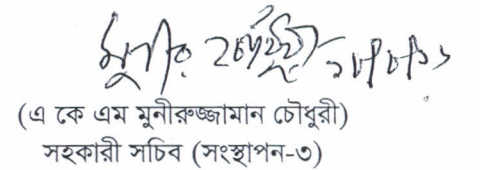 (এ কে এম মুনীরুজ্জামান চৌধুরী)
সহকারী সচিব (সংস্থাপন-৩)